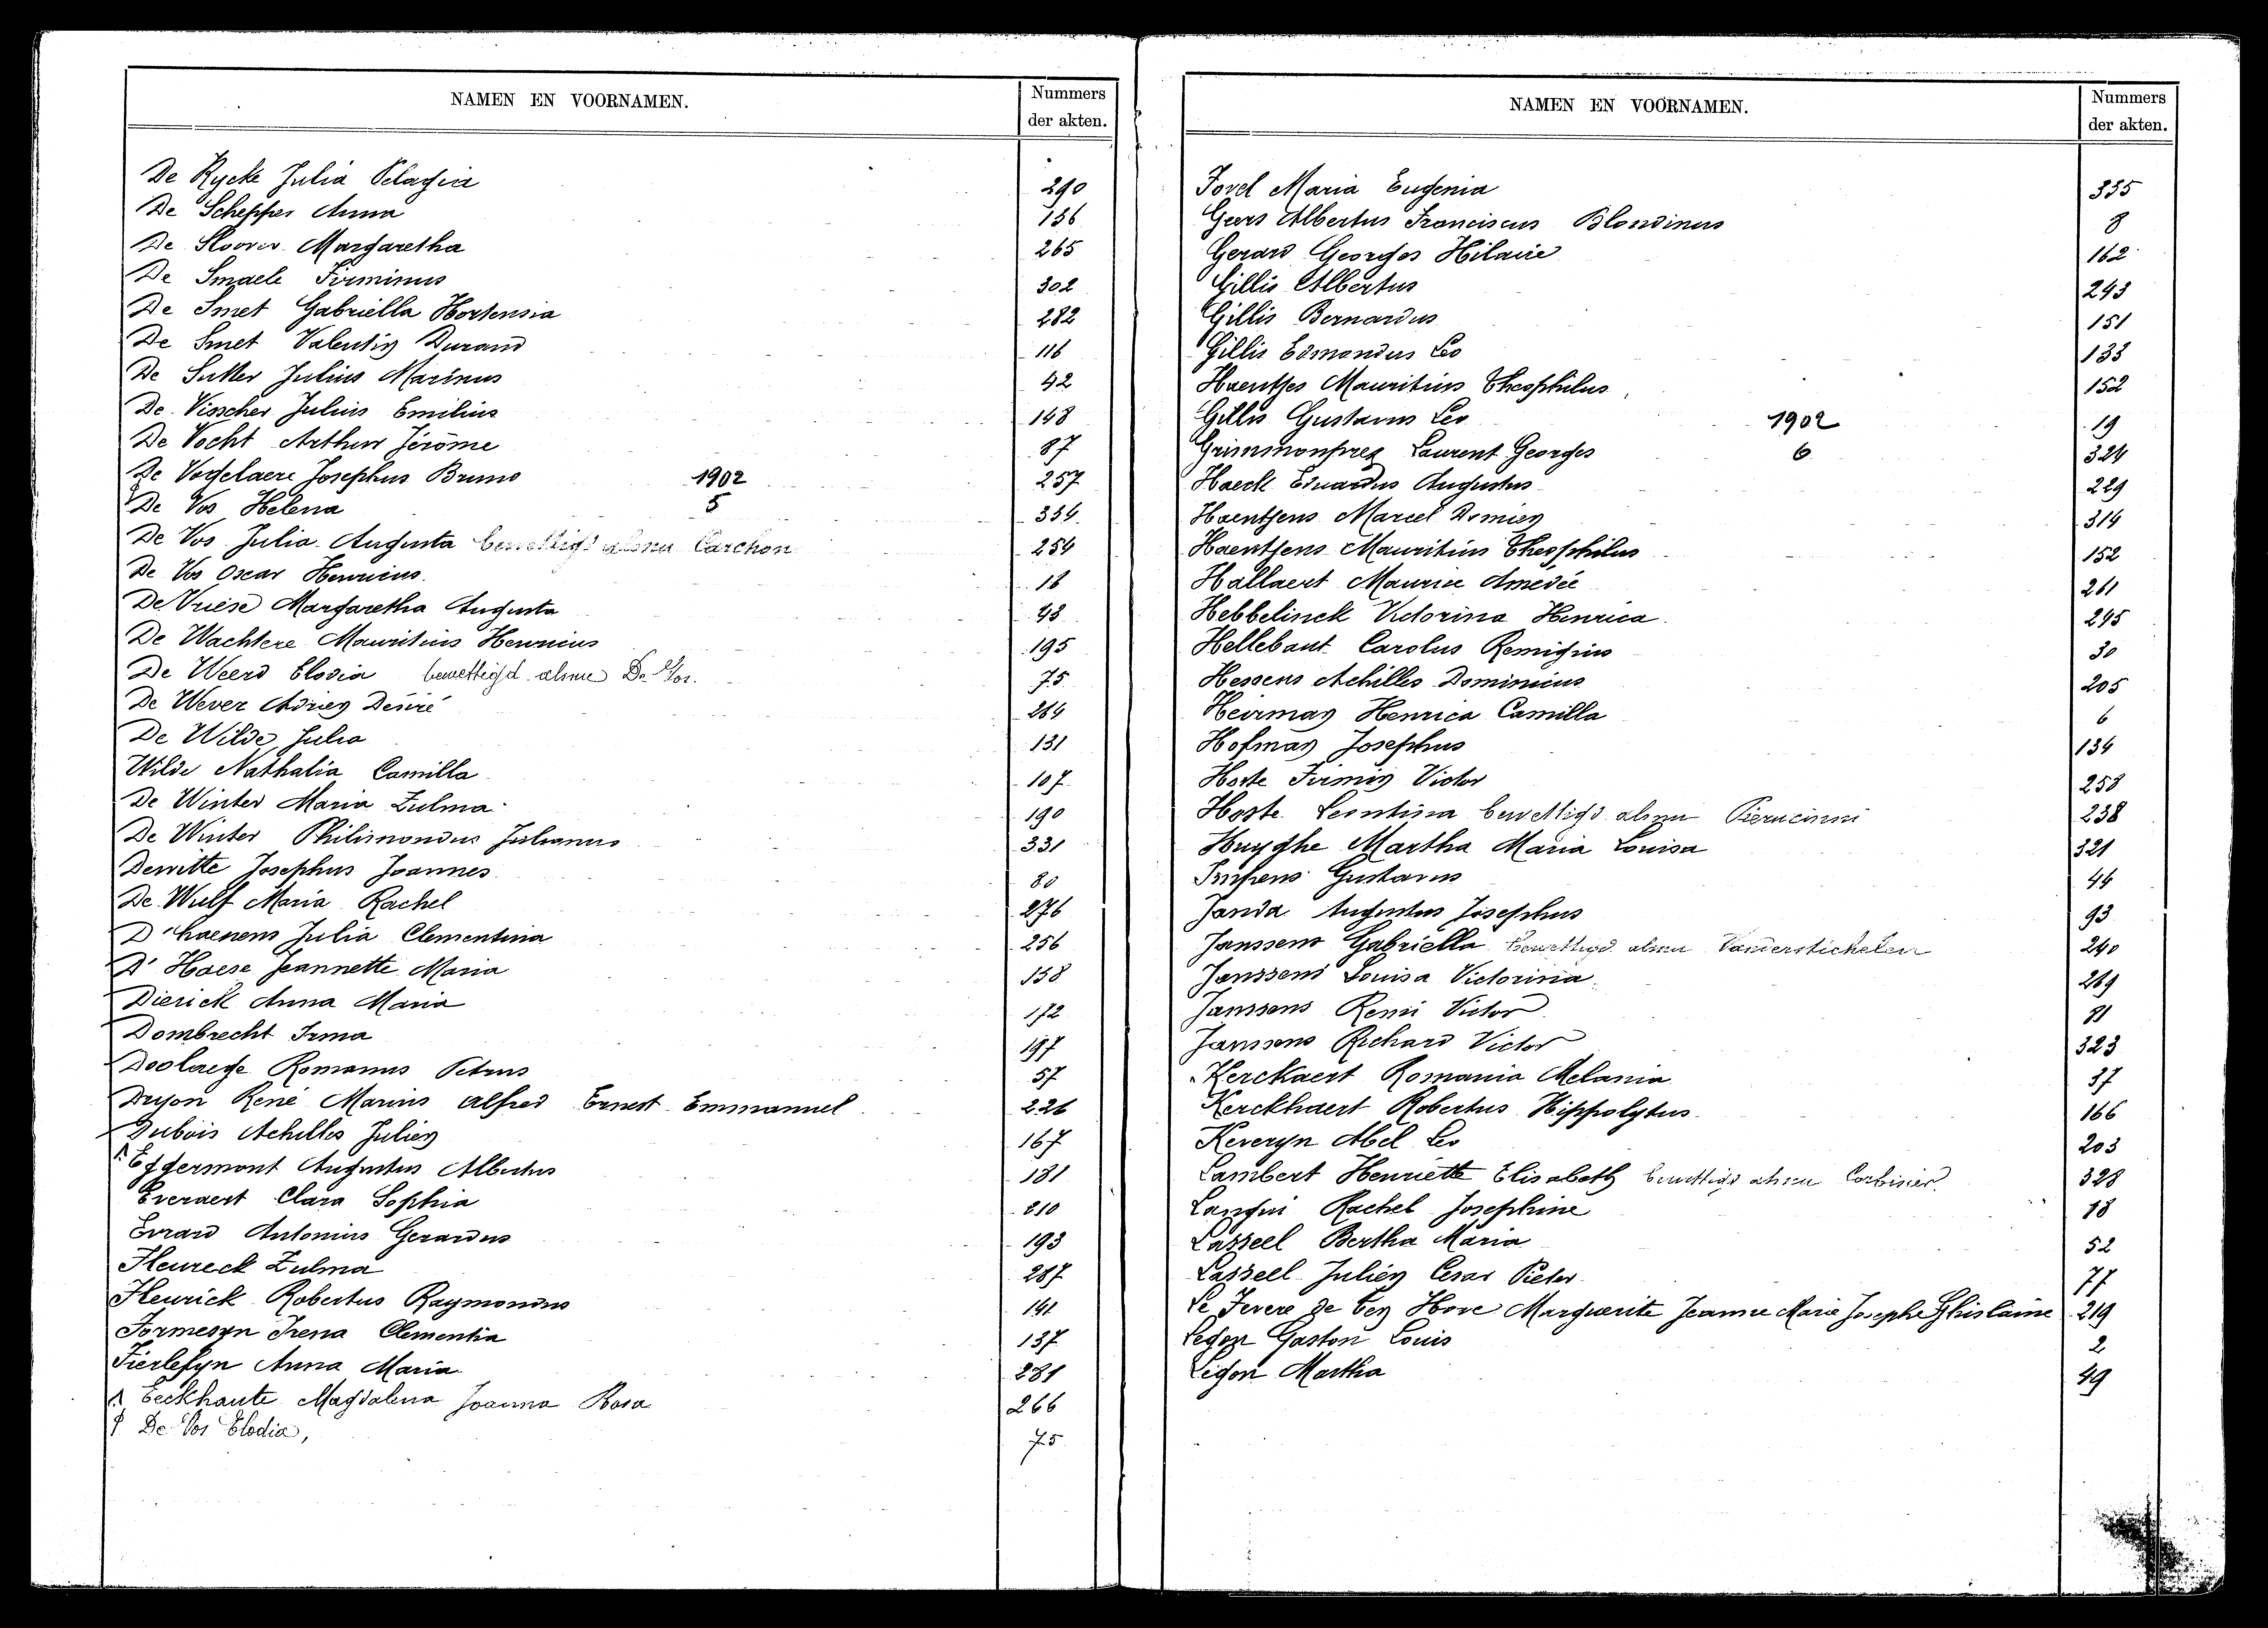 NAMEN EN VOORNAMEN. Nummers der akten.
De Rycke Julia Pelagia 290
De Schepper Anna 156
De Sloover Margaretha 265
De Smaele Firminus 302
De Smet Gabriella Hortensia 282
De Smet Valentin Durand 116
De Sutter Julius Marinus 42
De Visscher Julius Emilius 148
De Vocht Arthur Jérôme 87
De Vogelaere Josephus Bruno 1902 257
De Vos Helena 5 334
De Vos Julia Augusta bewettigd alsnu Carchon 254
De Vos Oscar Henricus 18
De Vriese Margaretha Augusta 48
De Wachtere Mauritius Henricus 195
De Weerd Elodia bewettigd alsnu De Vos. 75
De Wever Adrien Désiré 264
De Wilde Julia 131
Wilde Nathalia Camilla 107
De Winter Maria Zulma 190
De Winter Philimondus Julianus 331
Dewitte Josephus Joannes 80
De Wulf Maria Rachel 276
D'haenens Julia Clementina 256
D'Haese Jeannette Maria 158
Dierick Anna Maria 172
Dombrecht Irma 197
Doolaege Romanus Petrus 57
Dryon René Marius Alfred Ernest Emmanuel 226
Dubois Achilles Julien 167
Eggermont Augustus Albertus 181
Everaert Clara Sophia 210
Evrard Antonius Gerardus 193
Fleureck Zulma 287
Fleurick Robertus Raymondus 141
Formesyn Irena Clementia 137
Fierlefyn Anna Maria 281
Eeckhaute Magdalena Joanna Rosa 266
De Vos Elodia, 75
NAMEN EN VOORNAMEN. Nummers der akten.
Fovel Maria Eugenia 335
Geers Albertus Franciscus Blondinus 8
Gerard Georges Hilaire 162
Gillis Albertus 243
Gillis Bernardus 151
Gillis Edmondus Leo 133
Haentjes Mauritius Theophilus 152
Gillis Gustavus Leo 1902 19
Grimmonprez Laurent Georges 6 324
Haeck Eduardus Augustus 229
Haentjens Marcel Domien 314
Haentjens Mauritius Theophilus 152
Hallaert Maurice Amedée 261
Hebbelinck Victorina Henrica 295
Hellebaut Carolus Remigius 30
Hessens Achilles Dominicus 205
Heirman Henrica Camilla 6
Hofman Josephus 134
Hoste Firmin Victor 258
Hoste Leontina bewettigd alsnu Pierucinni 238
Huyghe Martha Maria Louisa 321
Impens Gustavus 44
Janda Augustus Josephus 93
Janssens Gabriella bewettigd alsnu Vanderstichelen 240
Janssens Louisa Victorina 269
Janssens Remi Victor 81
Janssens Richard Victor 323
Kerckaert Romania Melania 37
Kerckhaert Robertus Hippolytus 166
Keveryn Abel Leo 203
Lambert Henriette Elisabeth bewettigd alsnu Corbisier. 328
Langui Rachel Josephine 18
Lasseel Bertha Maria 52
Lasseel Julien Cesar Pieter 77
Le Fevere de Ten Hove Marguerite Jeanne Marie Josephe Ghislaine 219
Legon Gaston Louis 2
Legon Martha 49